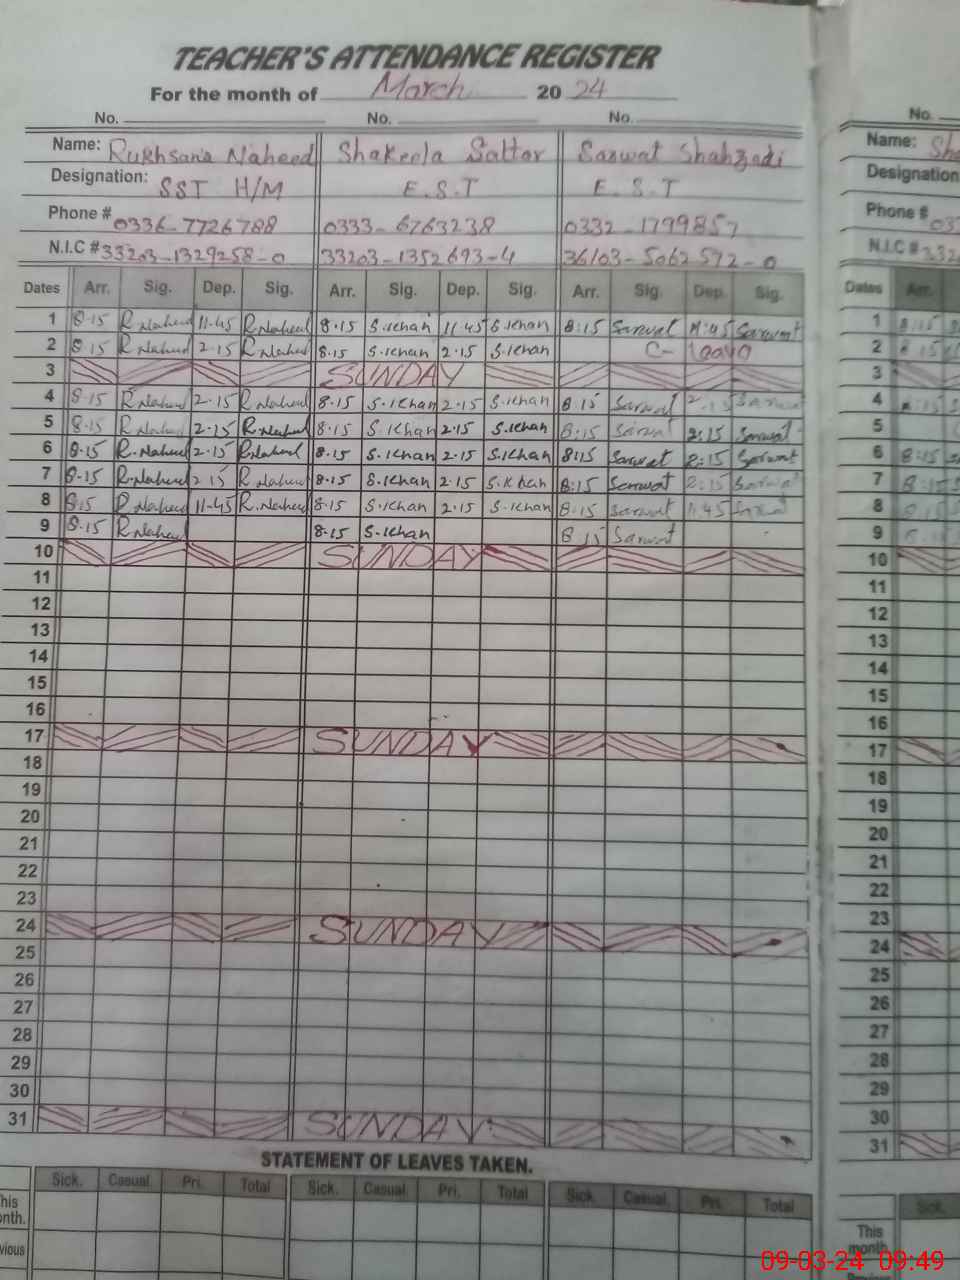 TEACHER'S ATTENDANCE REGISTER
For the month of March 2024
No. No. No. No.
Name: Rukhsana Naheed Shakeela Sattar Sarwat Shahzadi Name: Sha
Designation: SST H/M E.S.T E.S.T Designation
Phone # 0336-7726788 0333-6763238 0332-1799857 Phone # 033
N.I.C # 33203-1329258-0 33203-1352693-4 36103-5062572-0 N.I.C # 332
Dates Arr. Sig. Dep. Sig. Arr. Sig. Dep. Sig. Arr. Sig. Dep. Sig. Dates Arr.
1 8-15 R.Naheed 11-45 R.Naheed 8.15 S.Khan 11.45 S.Khan 8:15 Sarwat 11:45 Sarwat 1 8:15
2 8-15 R.Naheed 2-15 R.Naheed 8.15 S.Khan 2.15 S.Khan C- 2 8:15
3 SUNDAY 3
4 8-15 R.Naheed 2-15 R.Naheed 8.15 S.Khan 2.15 S.Khan 8:15 Sarwat 2:15 Sarwat 4
5 8-15 R.Naheed 2-15 R.Naheed 8.15 S.Khan 2.15 S.Khan 8:15 Sarwat 2:15 Sarwat 5
6 8-15 R.Naheed 2-15 R.Naheed 8.15 S.Khan 2.15 S.Khan 8:15 Sarwat 2:15 Sarwat 6 8:15
7 8-15 R.Naheed 2-15 R.Naheed 8.15 S.Khan 2.15 S.Khan 8:15 Sarwat 2:15 Sarwat 7 8:15
8 8-15 R.Naheed 11-45 R.Naheed 8.15 S.Khan 2.15 S.Khan 8:15 Sarwat 1:45 Sarwat 8 8:15
9 8-15 R.Naheed 8.15 S.Khan 8:15 Sarwat 9
10 SUNDAY 10
11 11
12 12
13 13
14 14
15 15
16 16
17 SUNDAY 17
18 18
19 19
20 20
21 21
22 22
23 23
24 SUNDAY 24
25 25
26 26
27 27
28 28
29 29
30 30
31 SUNDAY 31
STATEMENT OF LEAVES TAKEN.
Sick. Casual. Pri. Total Sick. Casual. Pri. Total Sick. Casual. Pri. Total Sick.
his
onth.
This
month
vious
09-03-24 09:49